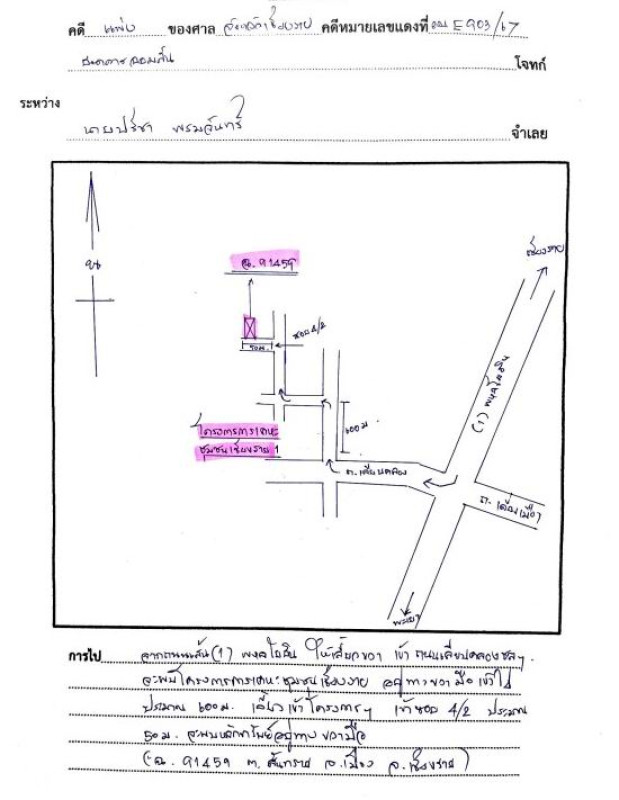 คดี แพ่ง ของศาล จังหวัดเชียงราย คดีหมายเลขแดงที่ ผบ E903/67
ธนาคารออมสิน โจทก์
ระหว่าง
นายปรีชา พรมจันทร์ จำเลย
น
ฉ. 91459
เชียงราย
ซอย 4/2
50ม.
(1) พหลโยธิน
600ม
โครงการการเคหะ
ชุมชนเชียงราย 1
ถ.เลียบคลอง
ถ.
พะเยา
การไป จากถนนเส้น (1) พหลโยธิน ให้เลี้ยวขวา เข้า ถนนเลียบคลองชลฯ
จะพบโครงการการเคหะชุมชนเชียงราย อยู่ทางขวามือ เข้าไป
ประมาณ 600ม. เลี้ยวเข้าโครงการฯ เข้าซอย 4/2 ประมาณ
50ม. จะพบหลักทรัพย์อยู่ทางขวามือ
(ฉ. 91459 ต. สันทราย อ.เมือง จ.เชียงราย)